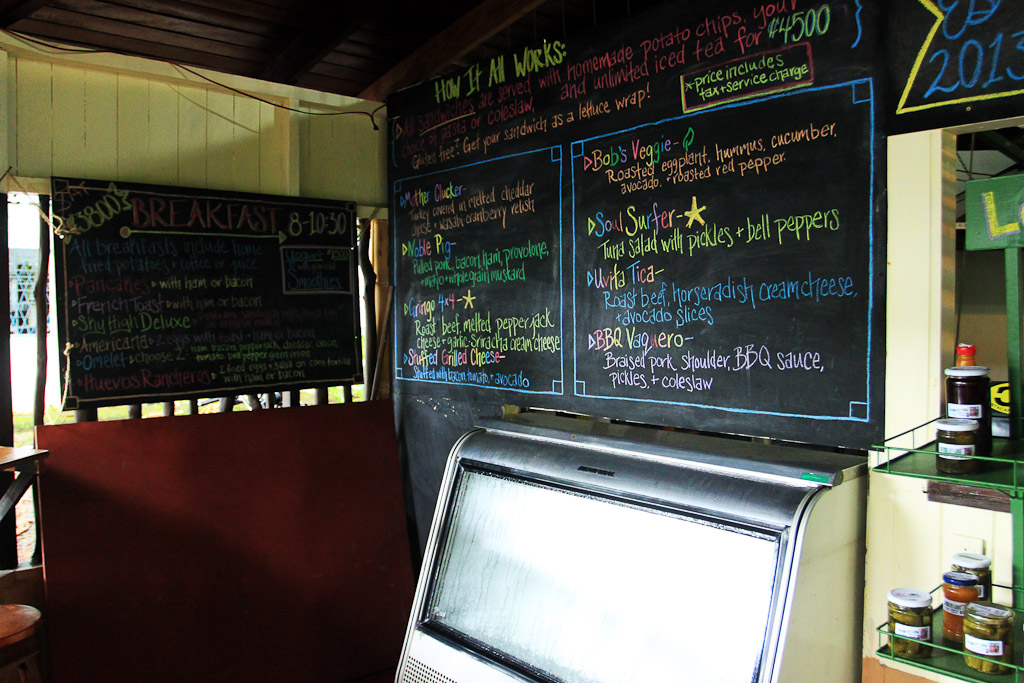 How It All Works:
All sandwiches are served with homemade potato chips, your
choice of pasta or coleslaw, and unlimited iced tea for ₡4500
Gluten free? Get your sandwich as a lettuce wrap!
*price includes
tax + service charge
Mother Clucker-
Turkey covered in melted cheddar
cheese + wasabi cranberry relish
Noble Pig-
Pulled pork, bacon, ham, provolone,
+ mayo + whole grain mustard
Gringo 4x4-
Roast beef, melted pepper jack
cheese + garlic-Sriracha cream cheese
Stuffed Grilled Cheese-
Stuffed with bacon, tomato, + avocado
Bob's Veggie-
Roasted eggplant, hummus, cucumber,
avocado, + roasted red pepper
Soul Surfer-
Tuna salad with pickles + bell peppers
Uvita Tica-
Roast beef, horseradish cream cheese,
+ avocado slices
BBQ Vaquero-
Braised pork shoulder, BBQ sauce,
pickles, + coleslaw
₡3800
BREAKFAST 8-10:30
All breakfasts include home
fried potatoes
Pancakes with ham or bacon
French Toast with ham or bacon
Sky High Deluxe
Americana
Omelet choose 2: ham, bacon, pepperjack, cheddar, onion,
tomato, bell pepper, green onion
Huevos Rancheros 2 fried eggs + salsa on corn tortilla
with ham or bacon
Yogurt
Smoothies
2013